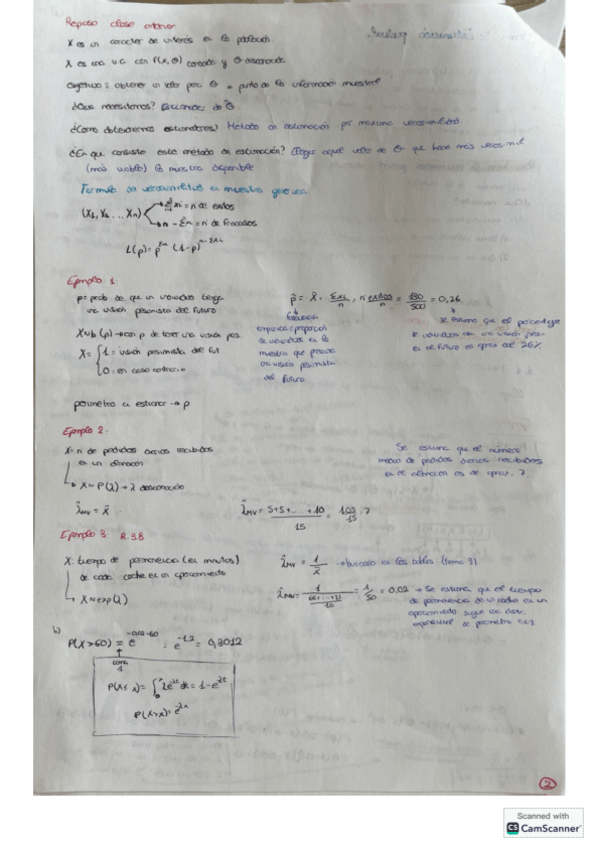 Repaso clase anterior
X es un caracter de interés en la población.
X es una v.a con P(X, θ) conocida y θ desconocida
Objetivo: obtener un valor para θ a partir de la información muestral
¿Que necesitamos? Estimador de θ.
¿Como obtenemos estimadores? Método de estimación por maxima verosimilitud
¿En que consiste este método de estimación? Elegir aquel valor de θ que hace más verosimil
(mas creible) la muestra disponible
Formula de verosimilitud en muestra
(X₁, X₂ ... Xₙ) Σxi = n de exitos
n - Σxi = n de fracasos
L(p) = p^Σxi (1-p)^n-Σxi
Ejemplo 1:
p = prob de que un individuo tenga
una visión pesimista del futuro
X~b(p) → con p de tener una visión pes.
X = { 1 = visión pesimista del fut
0 = en caso contrario
parámetro a estimar → p
p̂ = X̄ = Σxi / n, n exitos / n = 130 / 500 = 0,26
frecuencia
empirica/proporción
de individuos en la
muestra que presenta
una visión pesimista
del futuro
Se estima que el porcentaje
de individuos con una visión pes.
en el futuro es aprox del 26%
Ejemplo 2.
X = n de pedidos diarios recibidos
en un almacén
X ~ P(λ) → λ desconocido
λ̂MV = X̄
λ̂MV = 5+5+... +10 / 15 = 105 / 15 = 7
Se estima que el número
medio de pedidos diarios recibidos
en el almacén es de aprox. 7.
Ejemplo 3 R.38
X: tiempo de permanencia (en minutos)
de cada coche en un aparcamiento
X ~ exp(λ)
λ̂MV = 1 / X̄ → buscado en las tablas (tema 3)
= 1 / 50 = 0,02 → Se estima que el tiempo
de permanencia de un coche en un
aparcamiento sigue una dist.
exponencial de parámetro
b)
P(X>60) = e^-0,02·60 = e^-1,2 = 0,3012
P(X≤x) = 1-e
P(X>x) = e
2
Scanned with
CS CamScanner